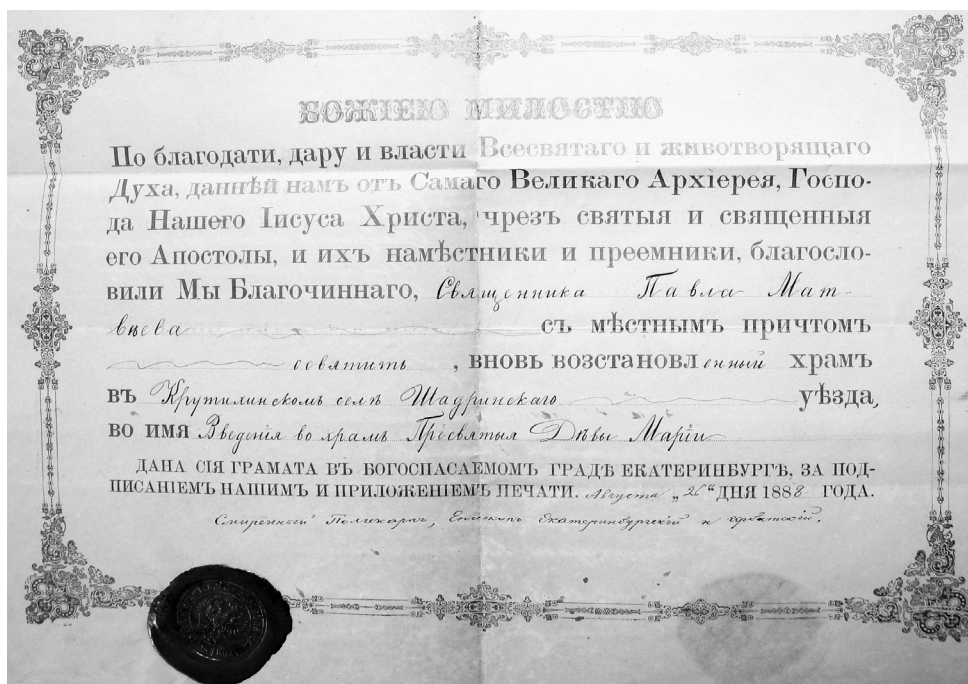 БОЖІЕЮ МИЛОСТІЮ
По благодати, дару и власти Всесвятаго и животворящаго
Духа, даннѣй намъ отъ Самаго Великаго Архіерея, Госпо-
да Нашего Іисуса Христа, чрезъ святыя и священныя
его Апостолы, и ихъ намѣстники и преемники, благосло-
вили Мы Благочиннаго, Священника Павла Мат-
вѣева съ мѣстнымъ причтомъ
освятить , вновь возстановленный храмъ
въ Крутилинскомъ селѣ Шадринскаго уѣзда,
во имя Введенія во храмъ Пресвятыя Дѣвы Маріи
ДАНА СІЯ ГРАМАТА ВЪ БОГОСПАСАЕМОМЪ ГРАДѢ ЕКАТЕРИНБУРГѢ, ЗА ПОД-
ПИСАНІЕМЪ НАШИМЪ И ПРИЛОЖЕНІЕМЪ ПЕЧАТИ. Августа „26“ ДНЯ 1888 ГОДА.
Смиренный Поликарпъ, Епископъ Екатеринбургскій и Ирбитскій.